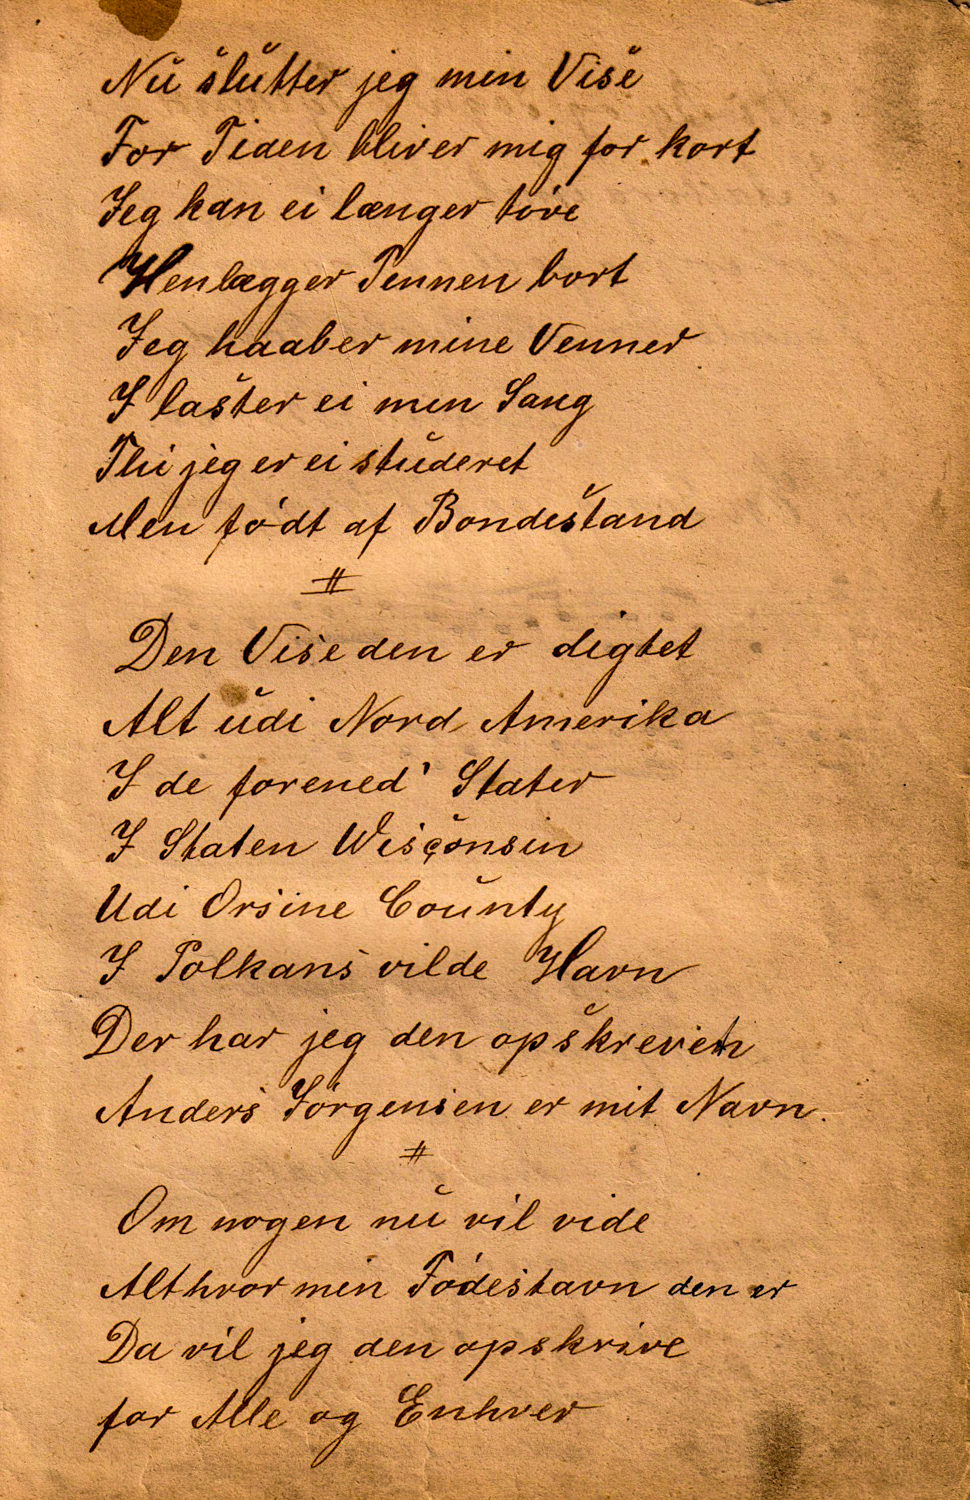 Nu slutter jeg min Vise
For Tiden bliver mig for kort
Jeg kan ei længer tøve
Henlægger Pennen bort
Jeg haaber mine Venner
I laster ei min Sang
Thi jeg er ei studeret
Men født af Bondestand
#
Den Vise den er digtet
Alt udi Nord Amerika
I de forened' Stater
I Staten Wisconsin
Udi Orsine County
I Polkans vilde Havn
Der har jeg den opskreven
Anders Jørgensen er mit Navn.
#
Om nogen nu vil vide
Alt hvor min Fødestavn den er
Da vil jeg den opskrive
for Alle og Enhver